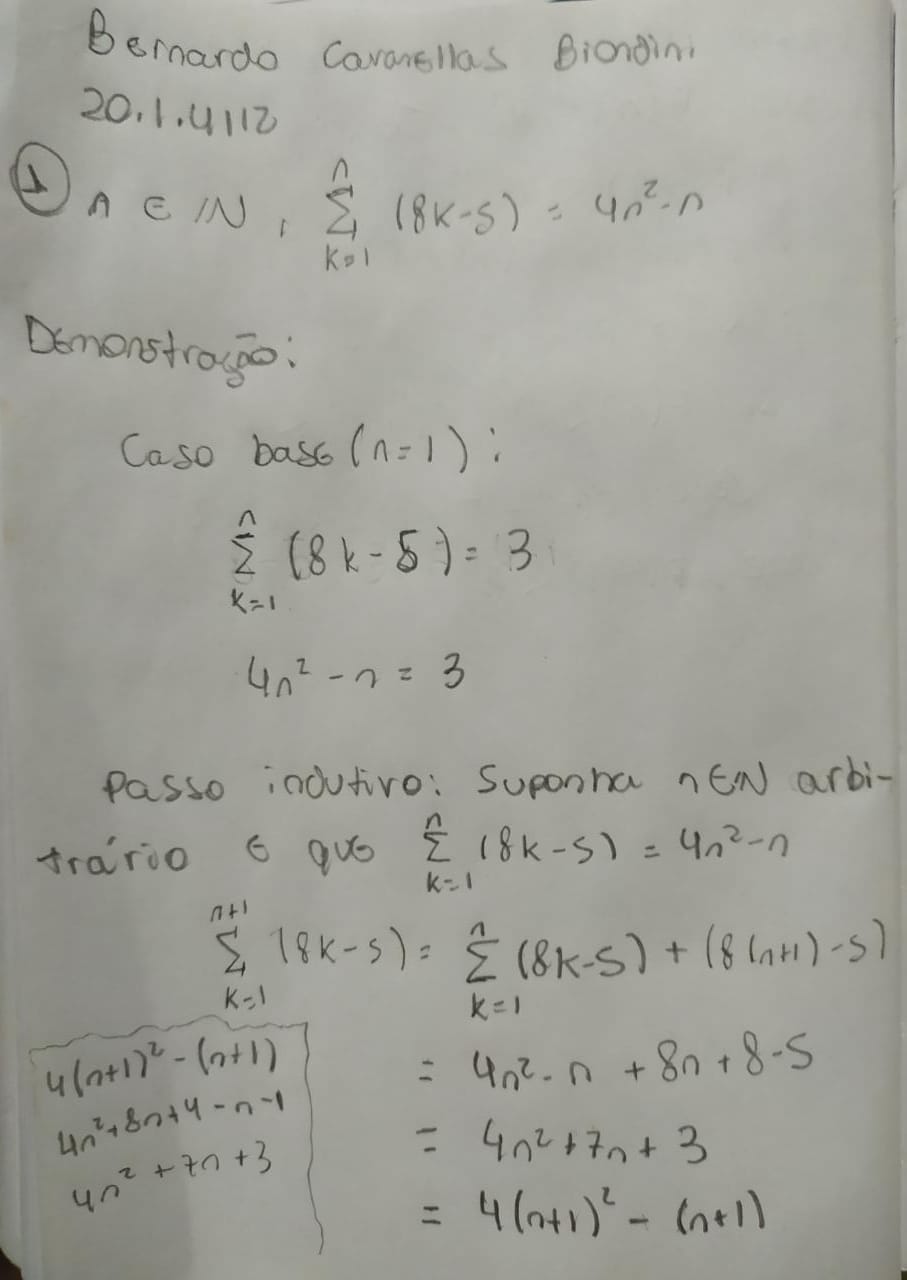 Bernardo Cavanellas Biondini
20.1.4112
① n ∈ IN, ∑_{k=1}^{n} (8k-5) = 4n²-n
Demonstração:
Caso base (n=1):
∑_{k=1}^{n} (8k-5) = 3
4n² - n = 3
Passo indutivo: Suponha n ∈ IN arbi-
trário e que ∑_{k=1}^{n} (8k-5) = 4n²-n
∑_{k=1}^{n+1} (8k-5) = ∑_{k=1}^{n} (8k-5) + (8(n+1)-5)
= 4n² - n + 8n + 8-5
= 4n² + 7n + 3
= 4(n+1)² - (n+1)
4(n+1)² - (n+1)
4n²+8n+4-n-1
4n² + 7n + 3